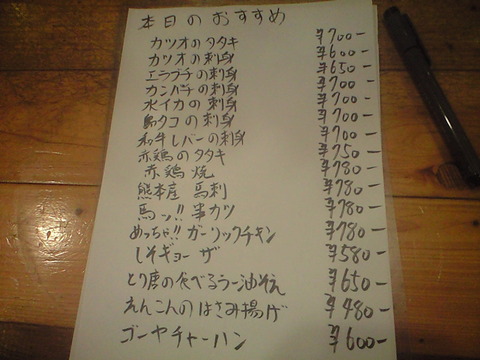 本日のおすすめ
カツオのタタキ ¥700-
カツオの刺身 ¥600-
エラブチの刺身 ¥650-
カンパチの刺身 ¥700-
水イカの刺身 ¥700-
島タコの刺身 ¥700-
和牛レバーの刺身 ¥700-
赤鶏のタタキ ¥750-
赤鶏 焼 ¥780-
熊本産 馬刺 ¥780-
馬ッ!! 串カツ ¥780-
めっちゃ!! ガーリックチキン ¥780-
しそギョーザ ¥580-
とり唐の食べるラー油そえ ¥650-
えんこんのはさみ揚げ ¥480-
ゴーヤチャーハン ¥600-